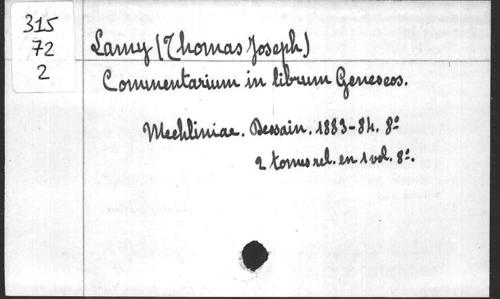 315
72
2
Lamy (Thomas Joseph)
Commentarium in librum Geneseos.
Mechliniae. Dessain. 1883-84. 8º
2 tomes rel. en 1 vol. 8º.